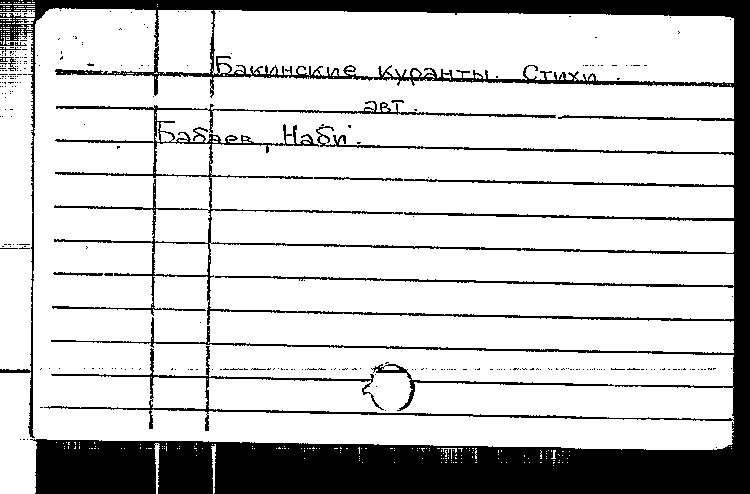 Бакинские куранты. Стихи.
авт.
Бабаев, Наби.